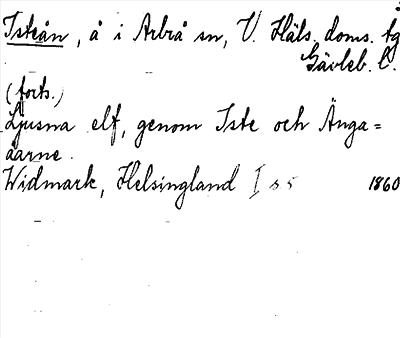 Isteån, å i Arbrå sn, V. Häls. doms. tg
Gävleb. l.
(forts.)
Ljusna elf, genom Iste och Änga=
åarne.
Widmark, Helsingland I s 5 1860